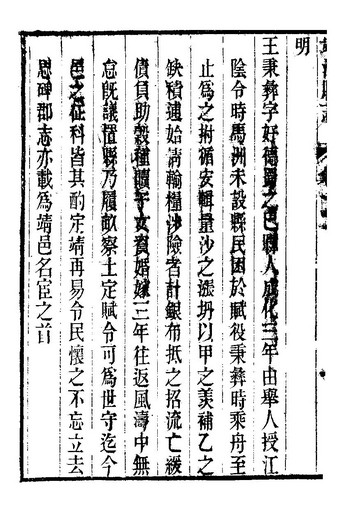 明
王秉彝字好德蜀之巴縣人成化三年由舉人授江
陰令時馬洲未設縣民困於賦役秉彝時乘舟至
止為之拊循安輯量沙之漲坍以甲之羨補乙之
缺積逋始清輸糧涉險者計銀布抵之招流亡緩
債負助穀種贖子女資婚嫁三年往返風濤中無
怠既議置縣乃履畝察土定賦令可為世守迄今
邑之征科皆其酌定靖再易令民懷之不忘立去
思碑郡志亦載為靖邑名宦之首